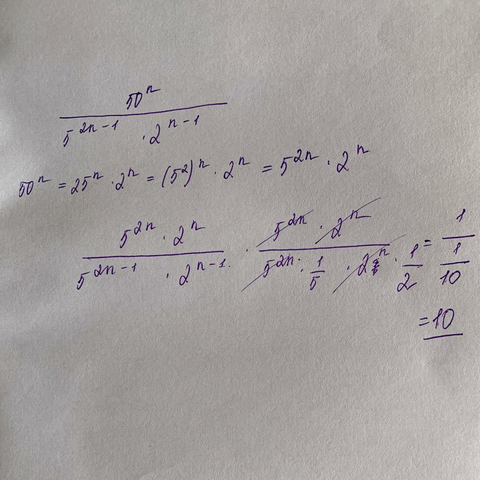 50^n / (5^(2n-1) · 2^(n-1))
50^n = 25^n · 2^n = (5^2)^n · 2^n = 5^(2n) · 2^n
(5^(2n) · 2^n) / (5^(2n-1) · 2^(n-1)) · (5^(2n) · 2^n) / (5^(2n) · 1/5 · 2^n · 1/2) = 1 / (1/10)
= 10